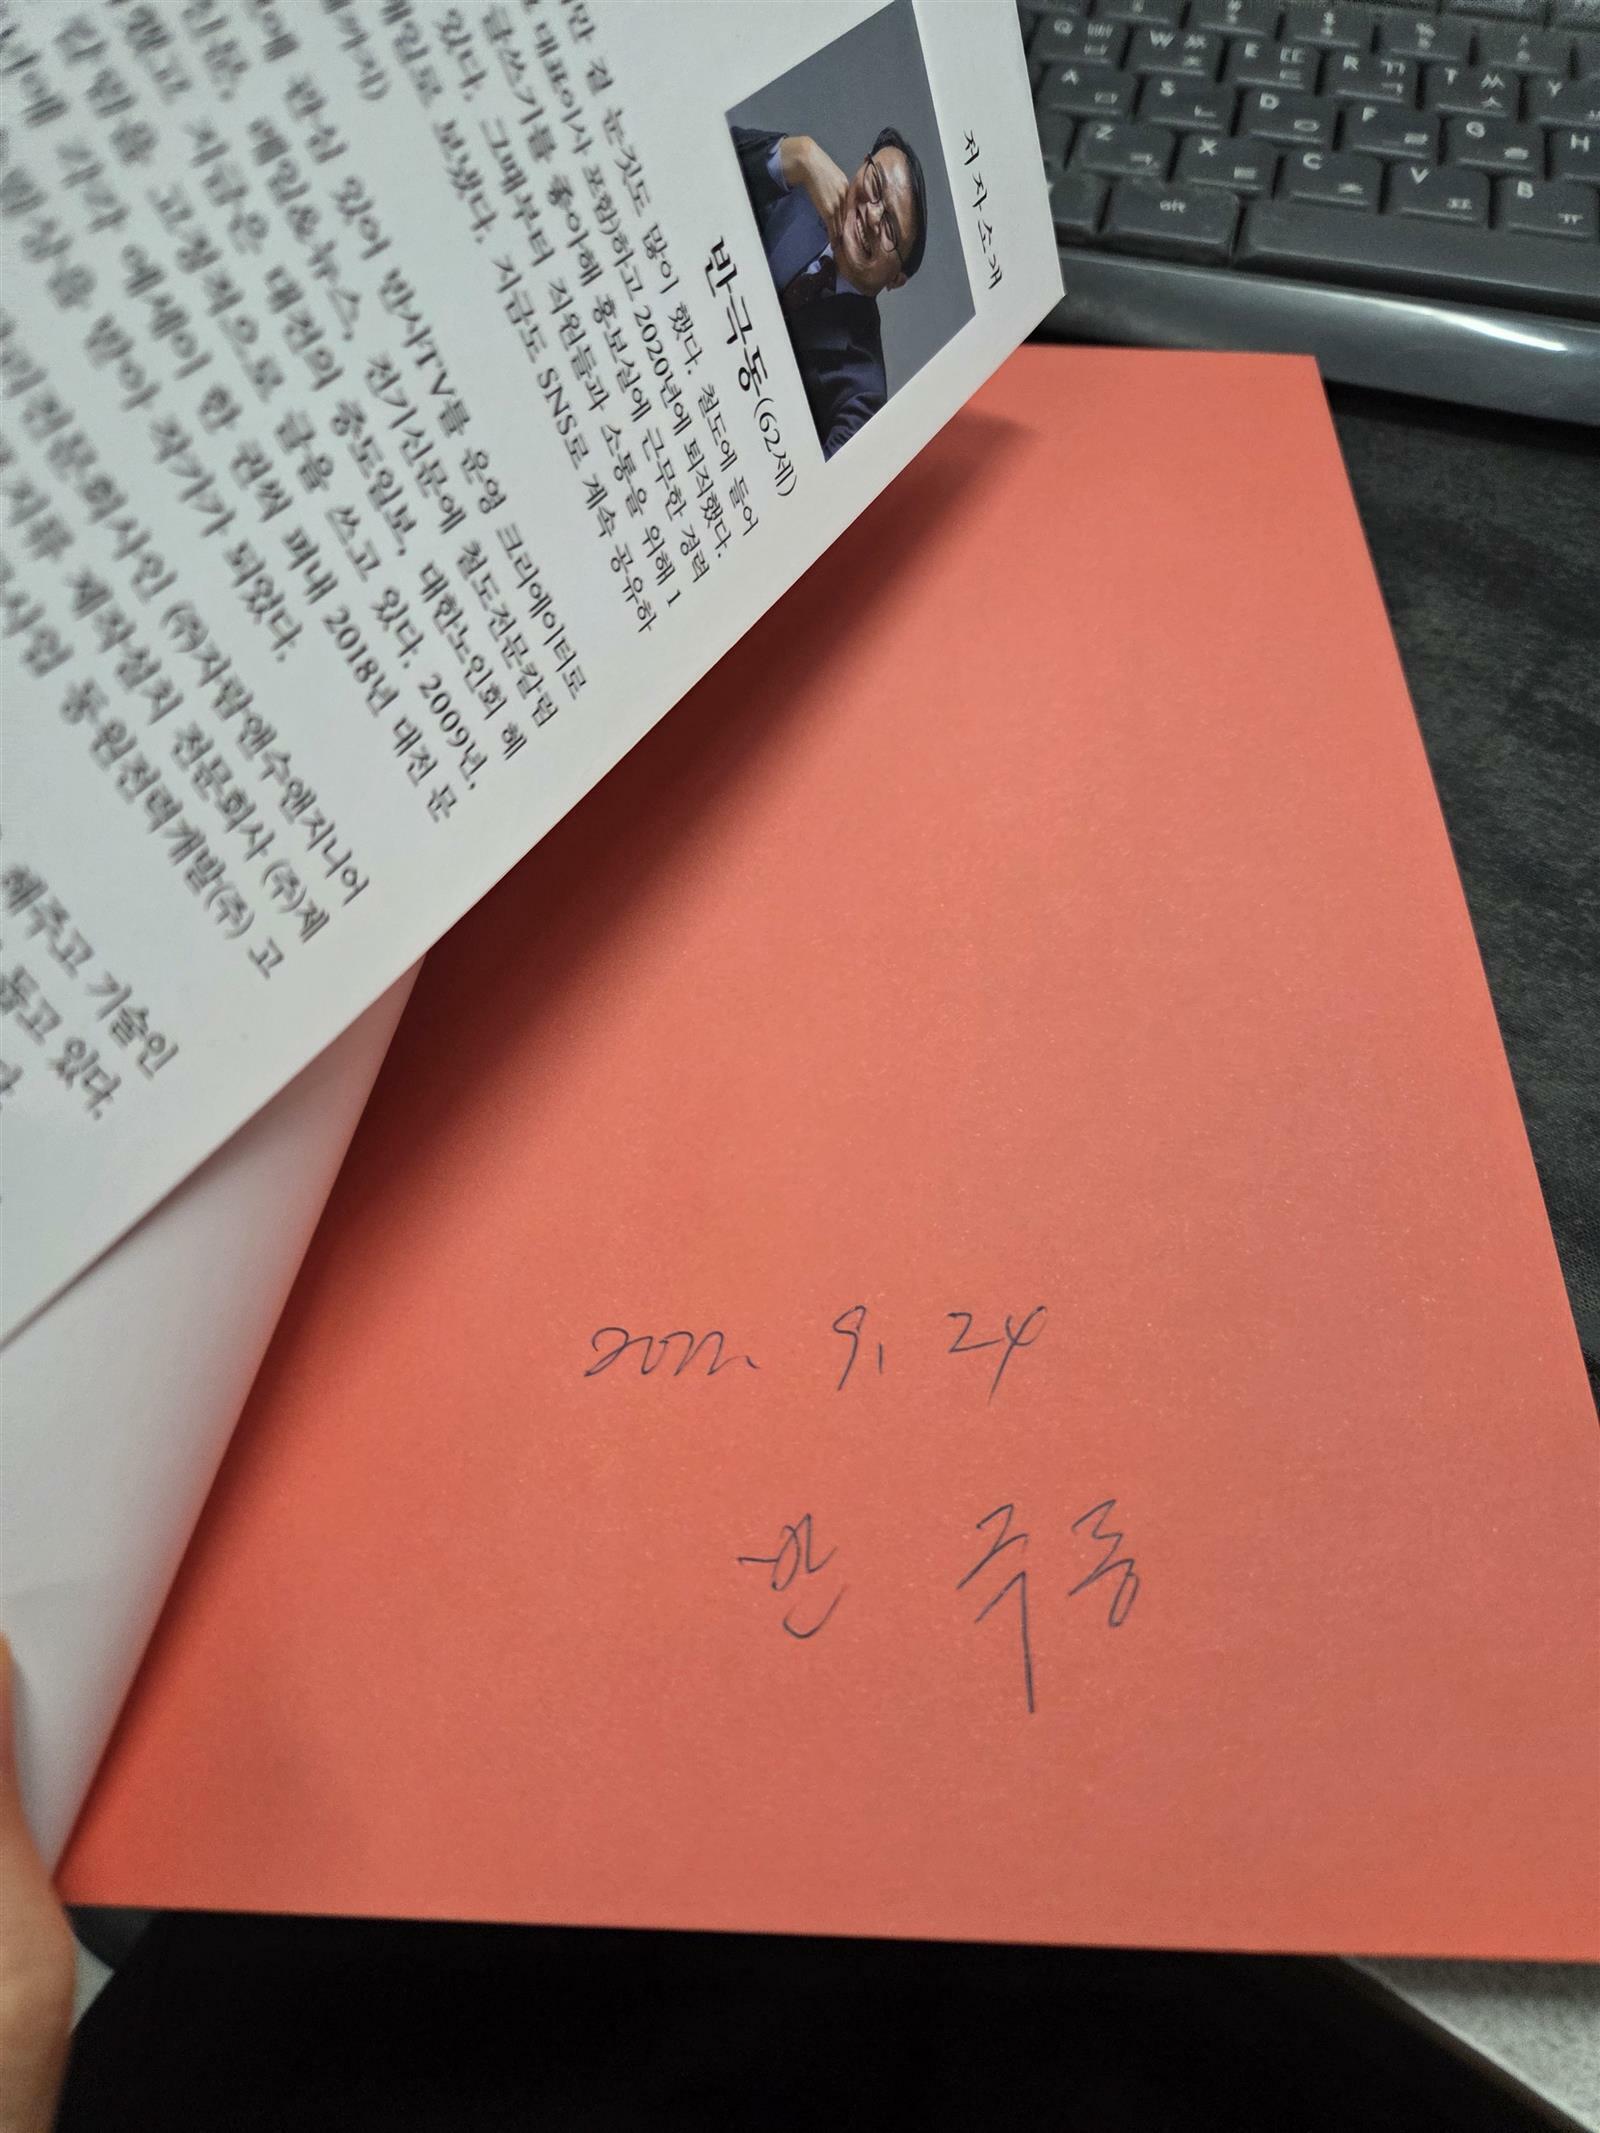 저자소개
반극동(62세)
만 걸 눈것도 많이 했다. 철도에 들어
대표이사 포함)하고 2020년에 퇴직했다.
글쓰기를 좋아해 홍보실에 근무한 경력
있다. 그때부터 직원들과 소통을 위해 1
메일로 보냈다. 지금도 SNS로 계속 공유하
관심 있어 반사TV를 운영 크리에이터로
매일&뉴스, 전기신문에 철도전문칼럼
지금은 대전의 중도일보, 대한노인회 혜
고정적으로 글을 쓰고 있다. 2009년,
각각 에세이 한 권씩 펴내 2018년 대전 문
상을 받아 작가가 되었다.
전문회사인 ㈜지탑엔수엔지니어
지류 제작설치 전문회사 (주)제
사업 동원전력개발(주) 고
해주고 기술인
돕고 있다.
2022. 9, 24
반 극동
Q W E R T Y
A S D F G H
Z X C V B
alt